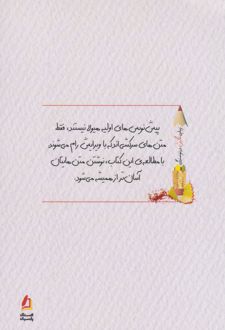 پیش‌نویس‌های اولیه هیولا نیستند، فقط
متن‌های سرکشی‌اند که با ویرایش رام می‌شوند
با مطالعه‌ی این کتاب، نوشتن متن هایتان
آسان‌تر از همیشه می‌شود.